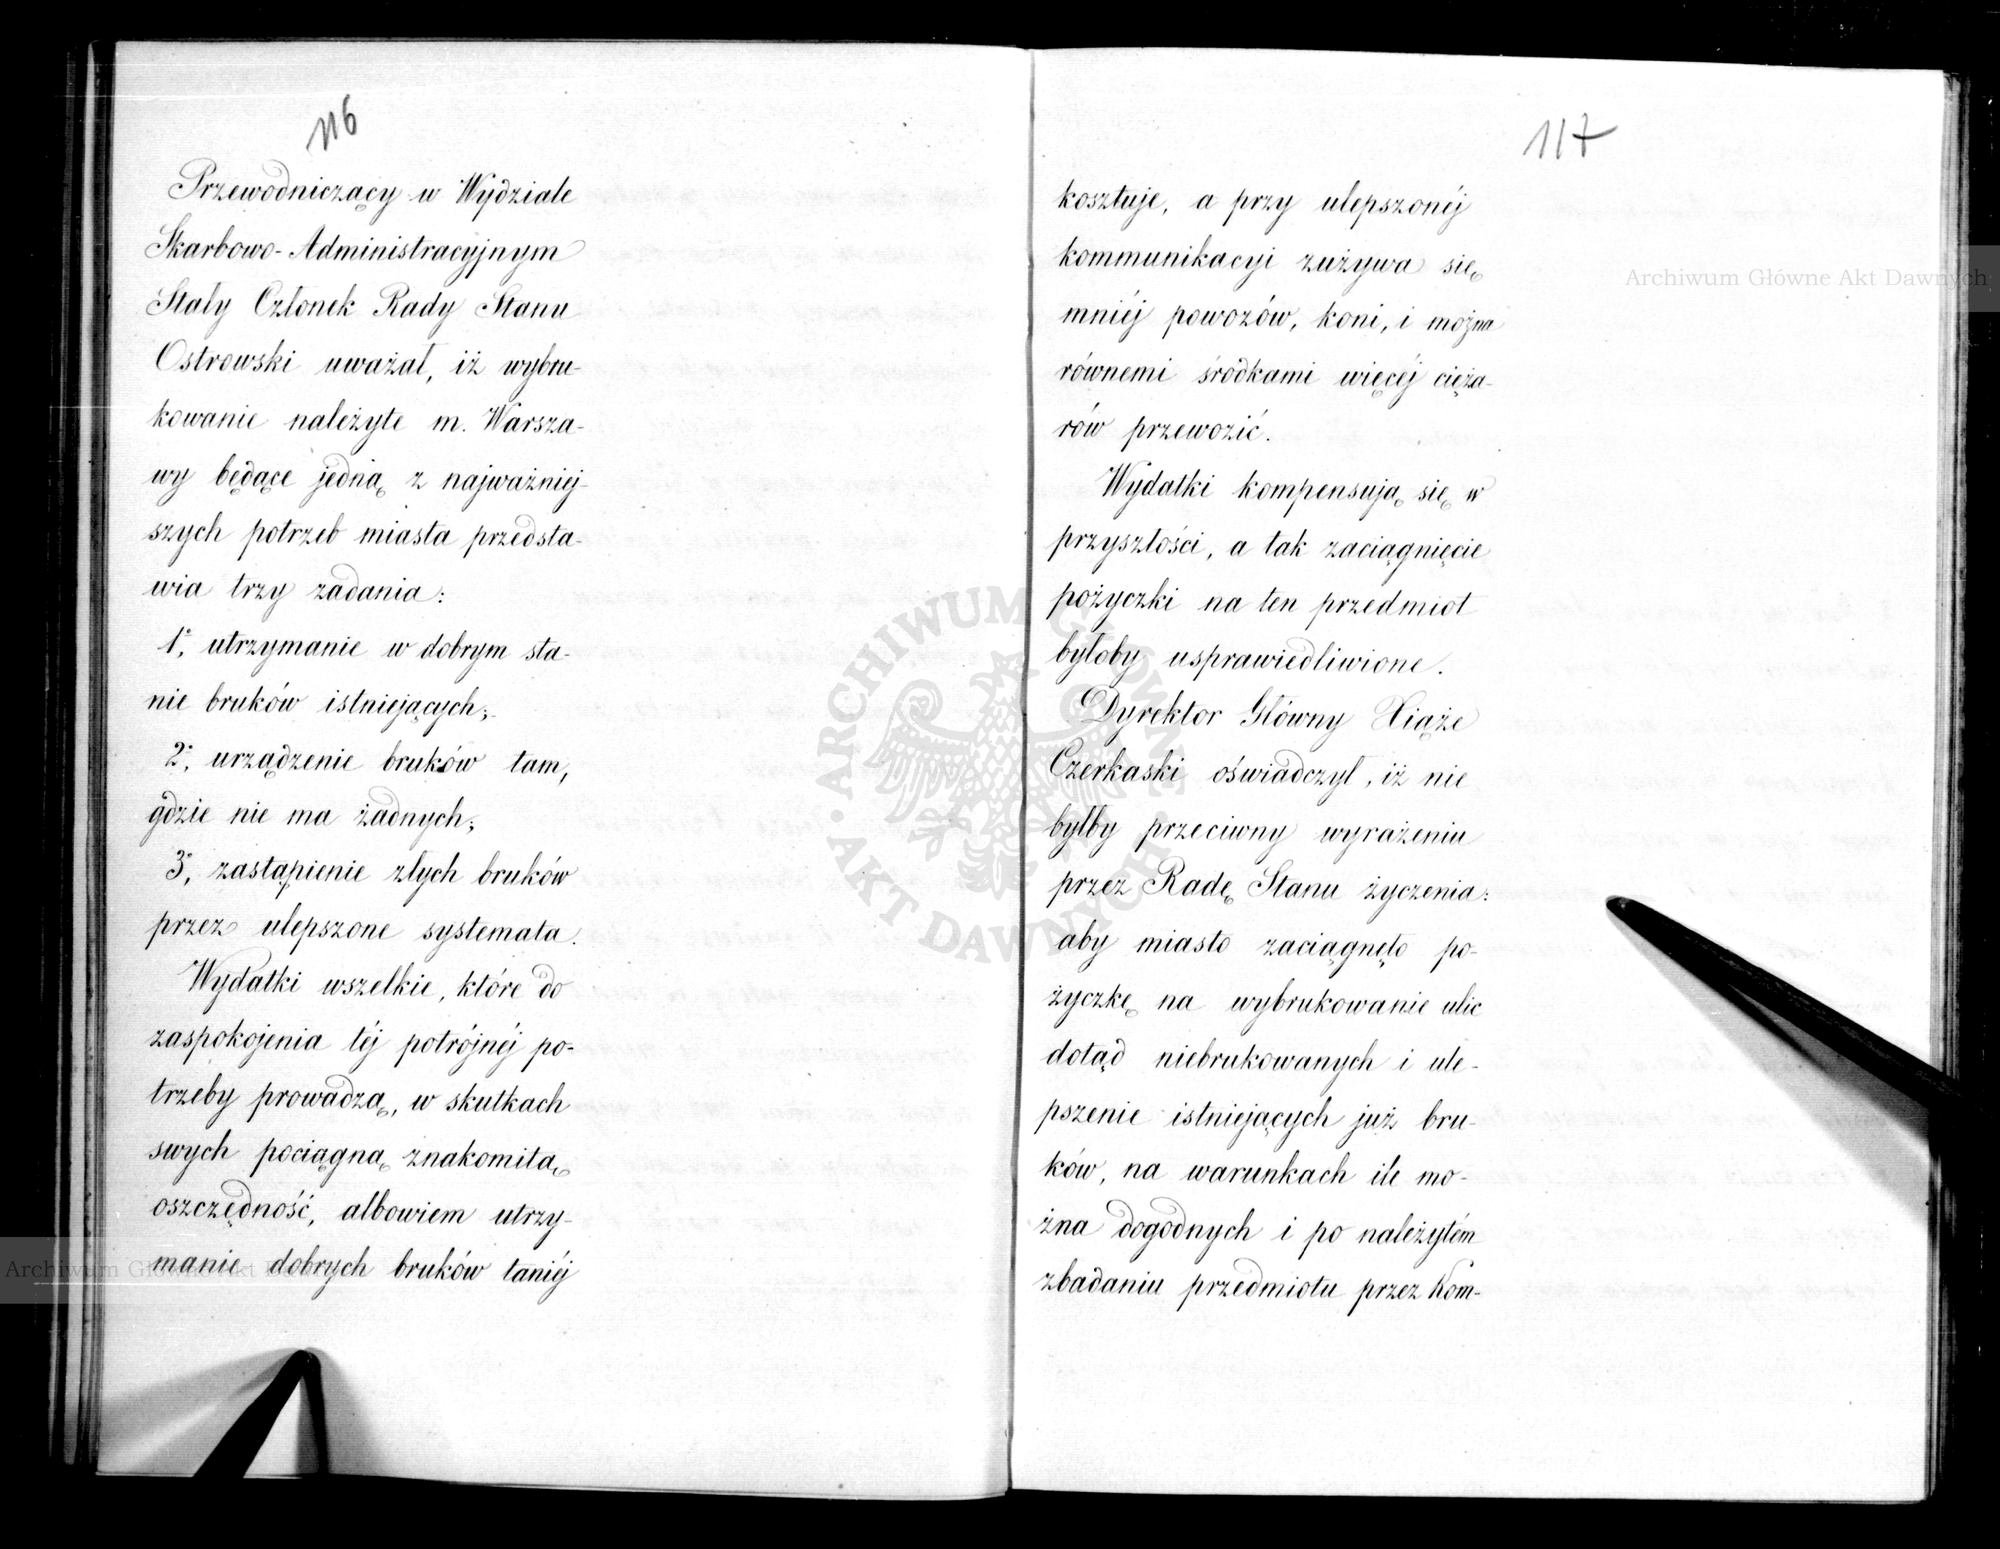 116
Przewodniczący w Wydziale
Skarbowo-Administracyjnym
Stały Członek Rady Stanu
Ostrowski uważał, iż wybru-
kowanie należyte m. Warsza-
wy będące jedną z najważniej-
szych potrzeb miasta przedsta-
wia trzy zadania:
1º, utrzymanie w dobrym sta-
nie bruków istniejących;
2º, urządzenie bruków tam,
gdzie nie ma żadnych;
3º, zastąpienie złych bruków
przez ulepszone systemata.
Wydatki wszelkie, które do
zaspokojenia téj potrójnéj po-
trzeby prowadzą, w skutkach
swych pociągną znakomitą
oszczędność, albowiem utrzy-
manie dobrych bruków taniéj
117
kosztuje, a przy ulepszonéj
kommunikacyi zużywa się
mniéj powozów, koni, i można
równemi środkami więcéj cięża-
rów przewozić.
Wydatki kompensują się w
przyszłości, a tak zaciągnięcie
pożyczki na ten przedmiot
byłoby usprawiedliwione.
Dyrektor Główny Xiąże
Czerkaski oświadczył, iż nie
byłby przeciwny wyrażeniu
przez Radę Stanu życzenia:
aby miasto zaciągnęło po-
życzkę na wybrukowanie ulic
dotąd niebrukowanych i ule-
pszenie istniejących już bru-
ków, na warunkach ile mo-
żna dogodnych i po należytém
zbadaniu przedmiotu przez Kom-
Archiwum Główne Akt Dawnych
Archiwum Główne Akt Dawnych
ARCHIWUM GŁÓWNE · AKT DAWNYCH ·